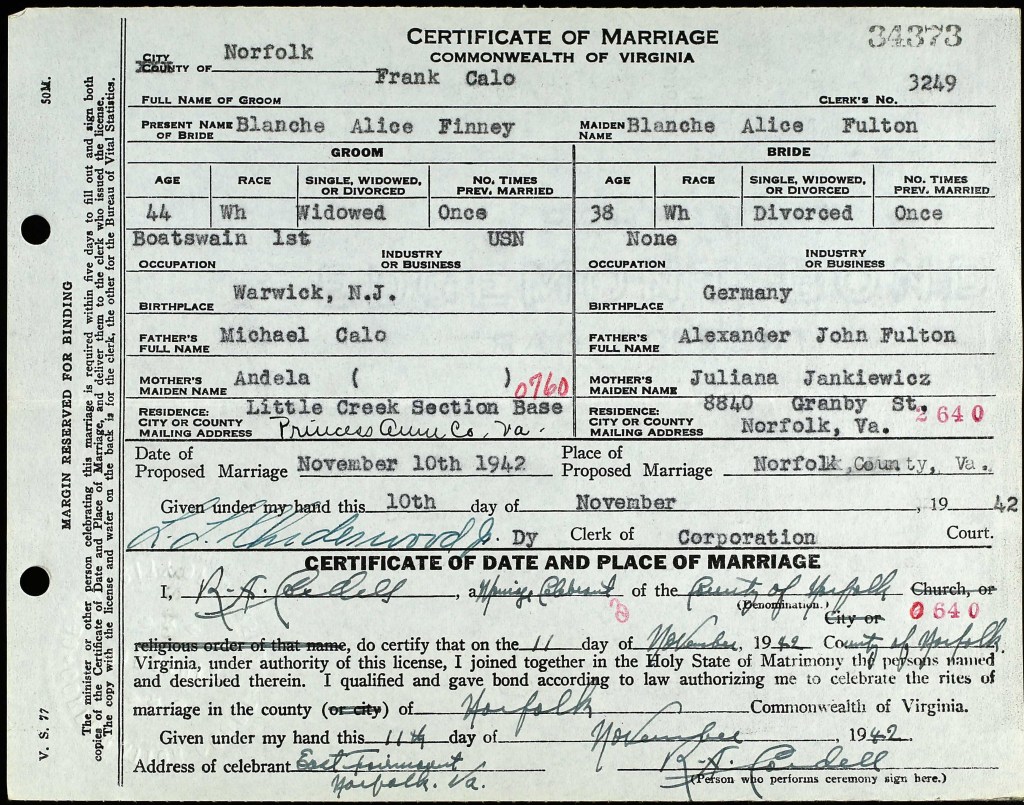 CERTIFICATE OF MARRIAGE
COMMONWEALTH OF VIRGINIA
34373
CITY
COUNTY OF Norfolk
Frank Calo
3249
FULL NAME OF GROOM
CLERK'S NO.
PRESENT NAME OF BRIDE Blanche Alice Finney
MAIDEN NAME Blanche Alice Fulton
GROOM
BRIDE
AGE RACE SINGLE, WIDOWED, OR DIVORCED NO. TIMES PREV. MARRIED
AGE RACE SINGLE, WIDOWED, OR DIVORCED NO. TIMES PREV. MARRIED
44 Wh Widowed Once
38 Wh Divorced Once
Boatswain 1st USN
None
OCCUPATION INDUSTRY OR BUSINESS
OCCUPATION INDUSTRY OR BUSINESS
BIRTHPLACE Warwick, N.J.
BIRTHPLACE Germany
FATHER'S FULL NAME Michael Calo
FATHER'S FULL NAME Alexander John Fulton
MOTHER'S MAIDEN NAME Andela ( ) 0760
MOTHER'S MAIDEN NAME Juliana Jankiewicz
RESIDENCE: Little Creek Section Base
CITY OR COUNTY
MAILING ADDRESS Princess Anne Co, Va.
RESIDENCE: 8840 Granby St, 2640
CITY OR COUNTY
MAILING ADDRESS Norfolk, Va.
Date of
Proposed Marriage November 10th 1942
Place of
Proposed Marriage Norfolk County, Va.
Given under my hand this 10th day of November, 1942
L. L. Underwood Jr. Dy Clerk of Corporation Court.
CERTIFICATE OF DATE AND PLACE OF MARRIAGE
I, R. A. , a Marriage Celebrant of the County of Norfolk Church, or
(Denomination.) City or 0640
3
religious order of that name, do certify that on the 11 day of November, 1942 County of Norfolk
Virginia, under authority of this license, I joined together in the Holy State of Matrimony the persons named
and described therein. I qualified and gave bond according to law authorizing me to celebrate the rites of
marriage in the county (or city) of Norfolk Commonwealth of Virginia.
Given under my hand this 11th day of November, 1942.
Address of celebrant East
Norfolk. Va.
R. A.
(Person who performs ceremony sign here.)
50M.
MARGIN RESERVED FOR BINDING
The minister or other person celebrating this marriage is required within five days to fill out and sign both
copies of the Certificate of Date and Place of Marriage, and deliver them to the clerk who issued the license.
The copy with the license and wafer on the back is for the clerk, the other for the Bureau of Vital Statistics.
V. S. 77